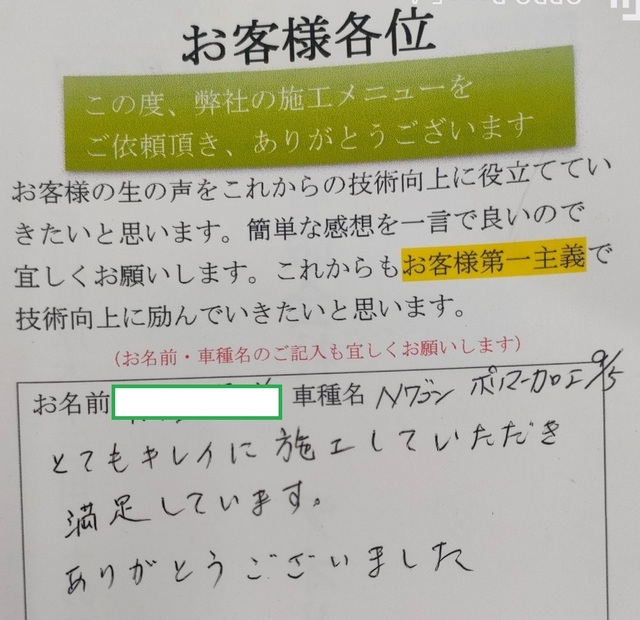 お客様各位
この度、弊社の施工メニューを
ご依頼頂き、ありがとうございます
お客様の生の声をこれからの技術向上に役立ててい
きたいと思います。簡単な感想を一言で良いので
宜しくお願いします。これからもお客様第一主義で
技術向上に励んでいきたいと思います。
(お名前・車種名のご記入も宜しくお願いします)
お名前 車種名 Nワゴン ポリマー加工 9/5
とてもキレイに施工していただき
満足しています。
ありがとうございました